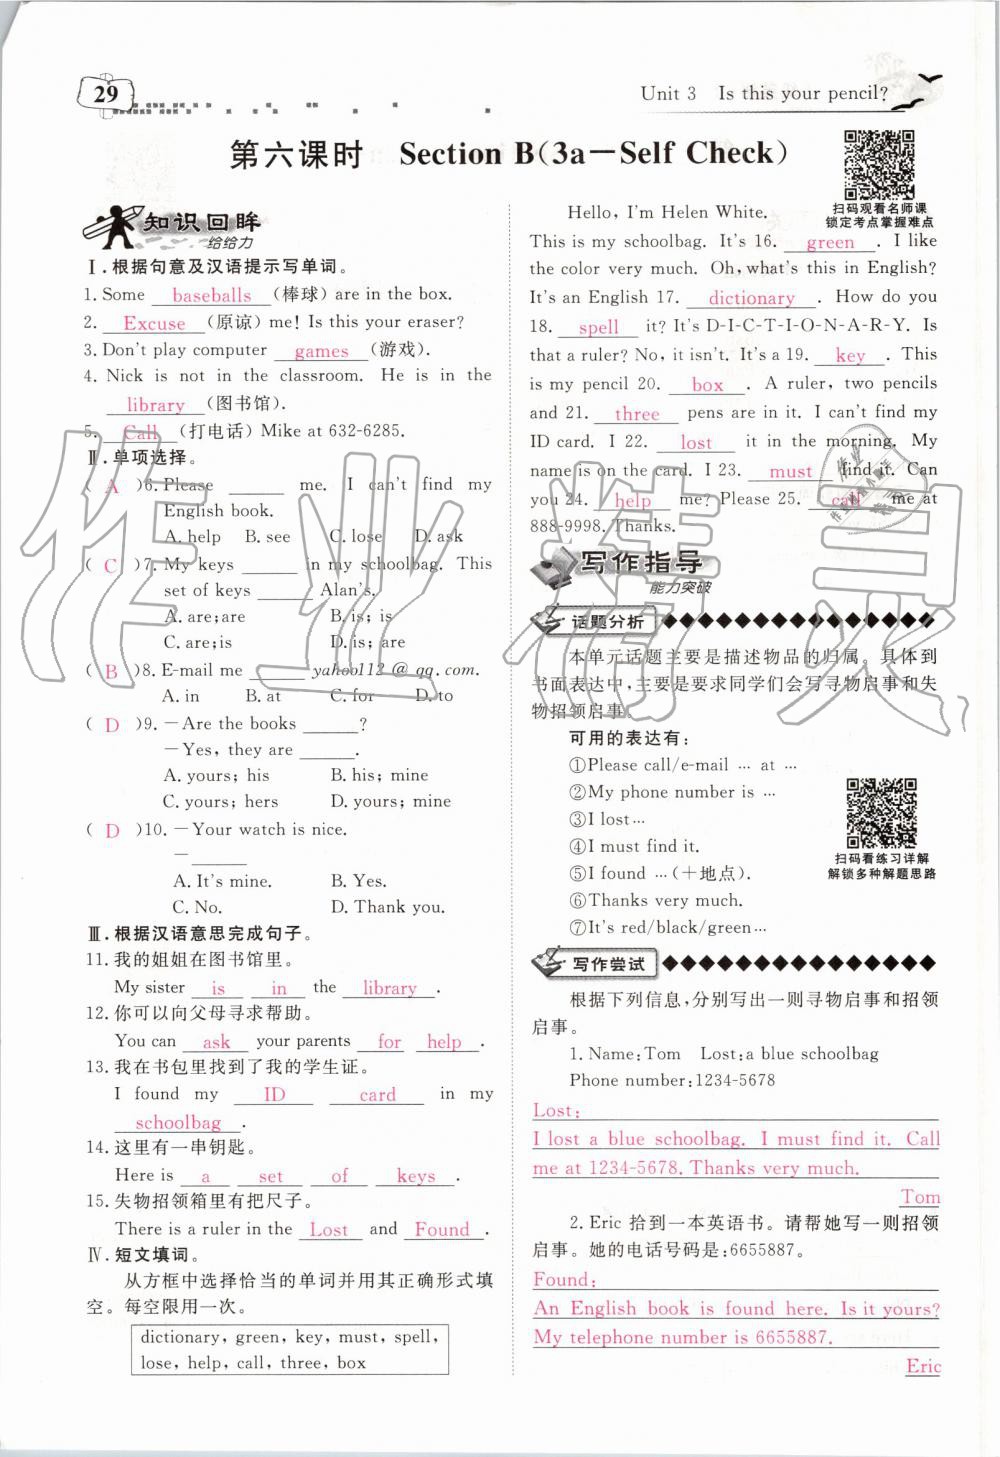 29
Unit 3 Is this your pencil?
第六课时 Section B(3a—Self Check)
知识回眸
给给力
Ⅰ.根据句意及汉语提示写单词。
1. Some baseballs (棒球) are in the box.
2. Excuse (原谅) me! Is this your eraser?
3. Don't play computer games (游戏).
4. Nick is not in the classroom. He is in the
library (图书馆).
5. Call (打电话) Mike at 632-6285.
Ⅱ.单项选择。
( A )6. Please ______ me. I can't find my
English book.
A. help B. see C. lose D. ask
( C )7. My keys ______ in my schoolbag. This
set of keys ______ Alan's.
A. are; are B. is; is
C. are; is D. is; are
( B )8. E-mail me ______ yahoo112@qq.com.
A. in B. at C. for D. to
( D )9. —Are the books ______?
—Yes, they are ______.
A. yours; his B. his; mine
C. yours; hers D. yours; mine
( D )10. —Your watch is nice.
—______
A. It's mine. B. Yes.
C. No. D. Thank you.
Ⅲ.根据汉语意思完成句子。
11.我的姐姐在图书馆里。
My sister is in the library.
12.你可以向父母寻求帮助。
You can ask your parents for help.
13.我在书包里找到了我的学生证。
I found my ID card in my
schoolbag.
14.这里有一串钥匙。
Here is a set of keys.
15.失物招领箱里有把尺子。
There is a ruler in the Lost and Found.
Ⅳ.短文填词。
从方框中选择恰当的单词并用其正确形式填
空。每空限用一次。
dictionary, green, key, must, spell,
lose, help, call, three, box
扫码观看名师课
锁定考点掌握难点
Hello, I'm Helen White.
This is my schoolbag. It's 16. green. I like
the color very much. Oh, what's this in English?
It's an English 17. dictionary. How do you
18. spell it? It's D-I-C-T-I-O-N-A-R-Y. Is
that a ruler? No, it isn't. It's a 19. key. This
is my pencil 20. box. A ruler, two pencils
and 21. three pens are in it. I can't find my
ID card. I 22. lost it in the morning. My
name is on the card. I 23. must find it. Can
you 24. help me? Please 25. call me at
888-9998. Thanks.
写作指导
能力突破
话题分析
本单元话题主要是描述物品的归属。具体到
书面表达中,主要是要求同学们会写寻物启事和失
物招领启事。
可用的表达有:
①Please call/e-mail … at …
②My phone number is …
③I lost…
④I must find it.
⑤I found …(+地点).
⑥Thanks very much.
⑦It's red/black/green…
扫码看练习详解
解锁多种解题思路
写作尝试
根据下列信息,分别写出一则寻物启事和招领
启事。
1. Name:Tom Lost:a blue schoolbag
Phone number:1234-5678
Lost:
I lost a blue schoolbag. I must find it. Call
me at 1234-5678. Thanks very much.
Tom
2. Eric 拾到一本英语书。请帮她写一则招领
启事。她的电话号码是:6655887。
Found:
An English book is found here. Is it yours?
My telephone number is 6655887.
Eric
作业精灵